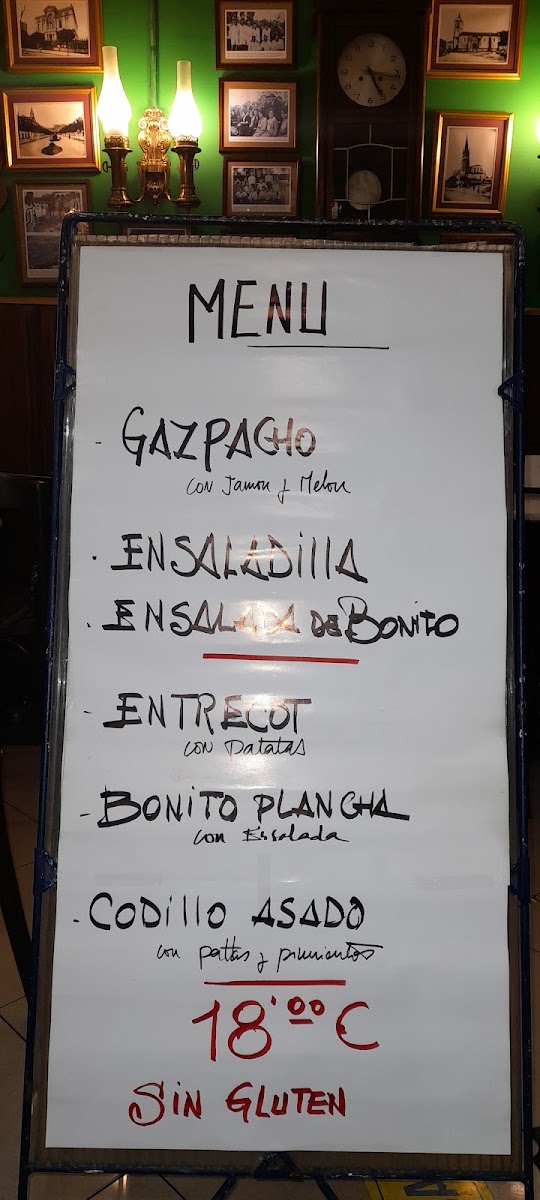 MENU
- GAZPACHO
con Jamon y Melon
· ENSALADILLA
· ENSALADA DE BONITO
- ENTRECOT
con Patatas
- BONITO PLANCHA
con Ensalada
- CODILLO ASADO
con pattas y pimientos
18'00 €
SIN GLUTEN